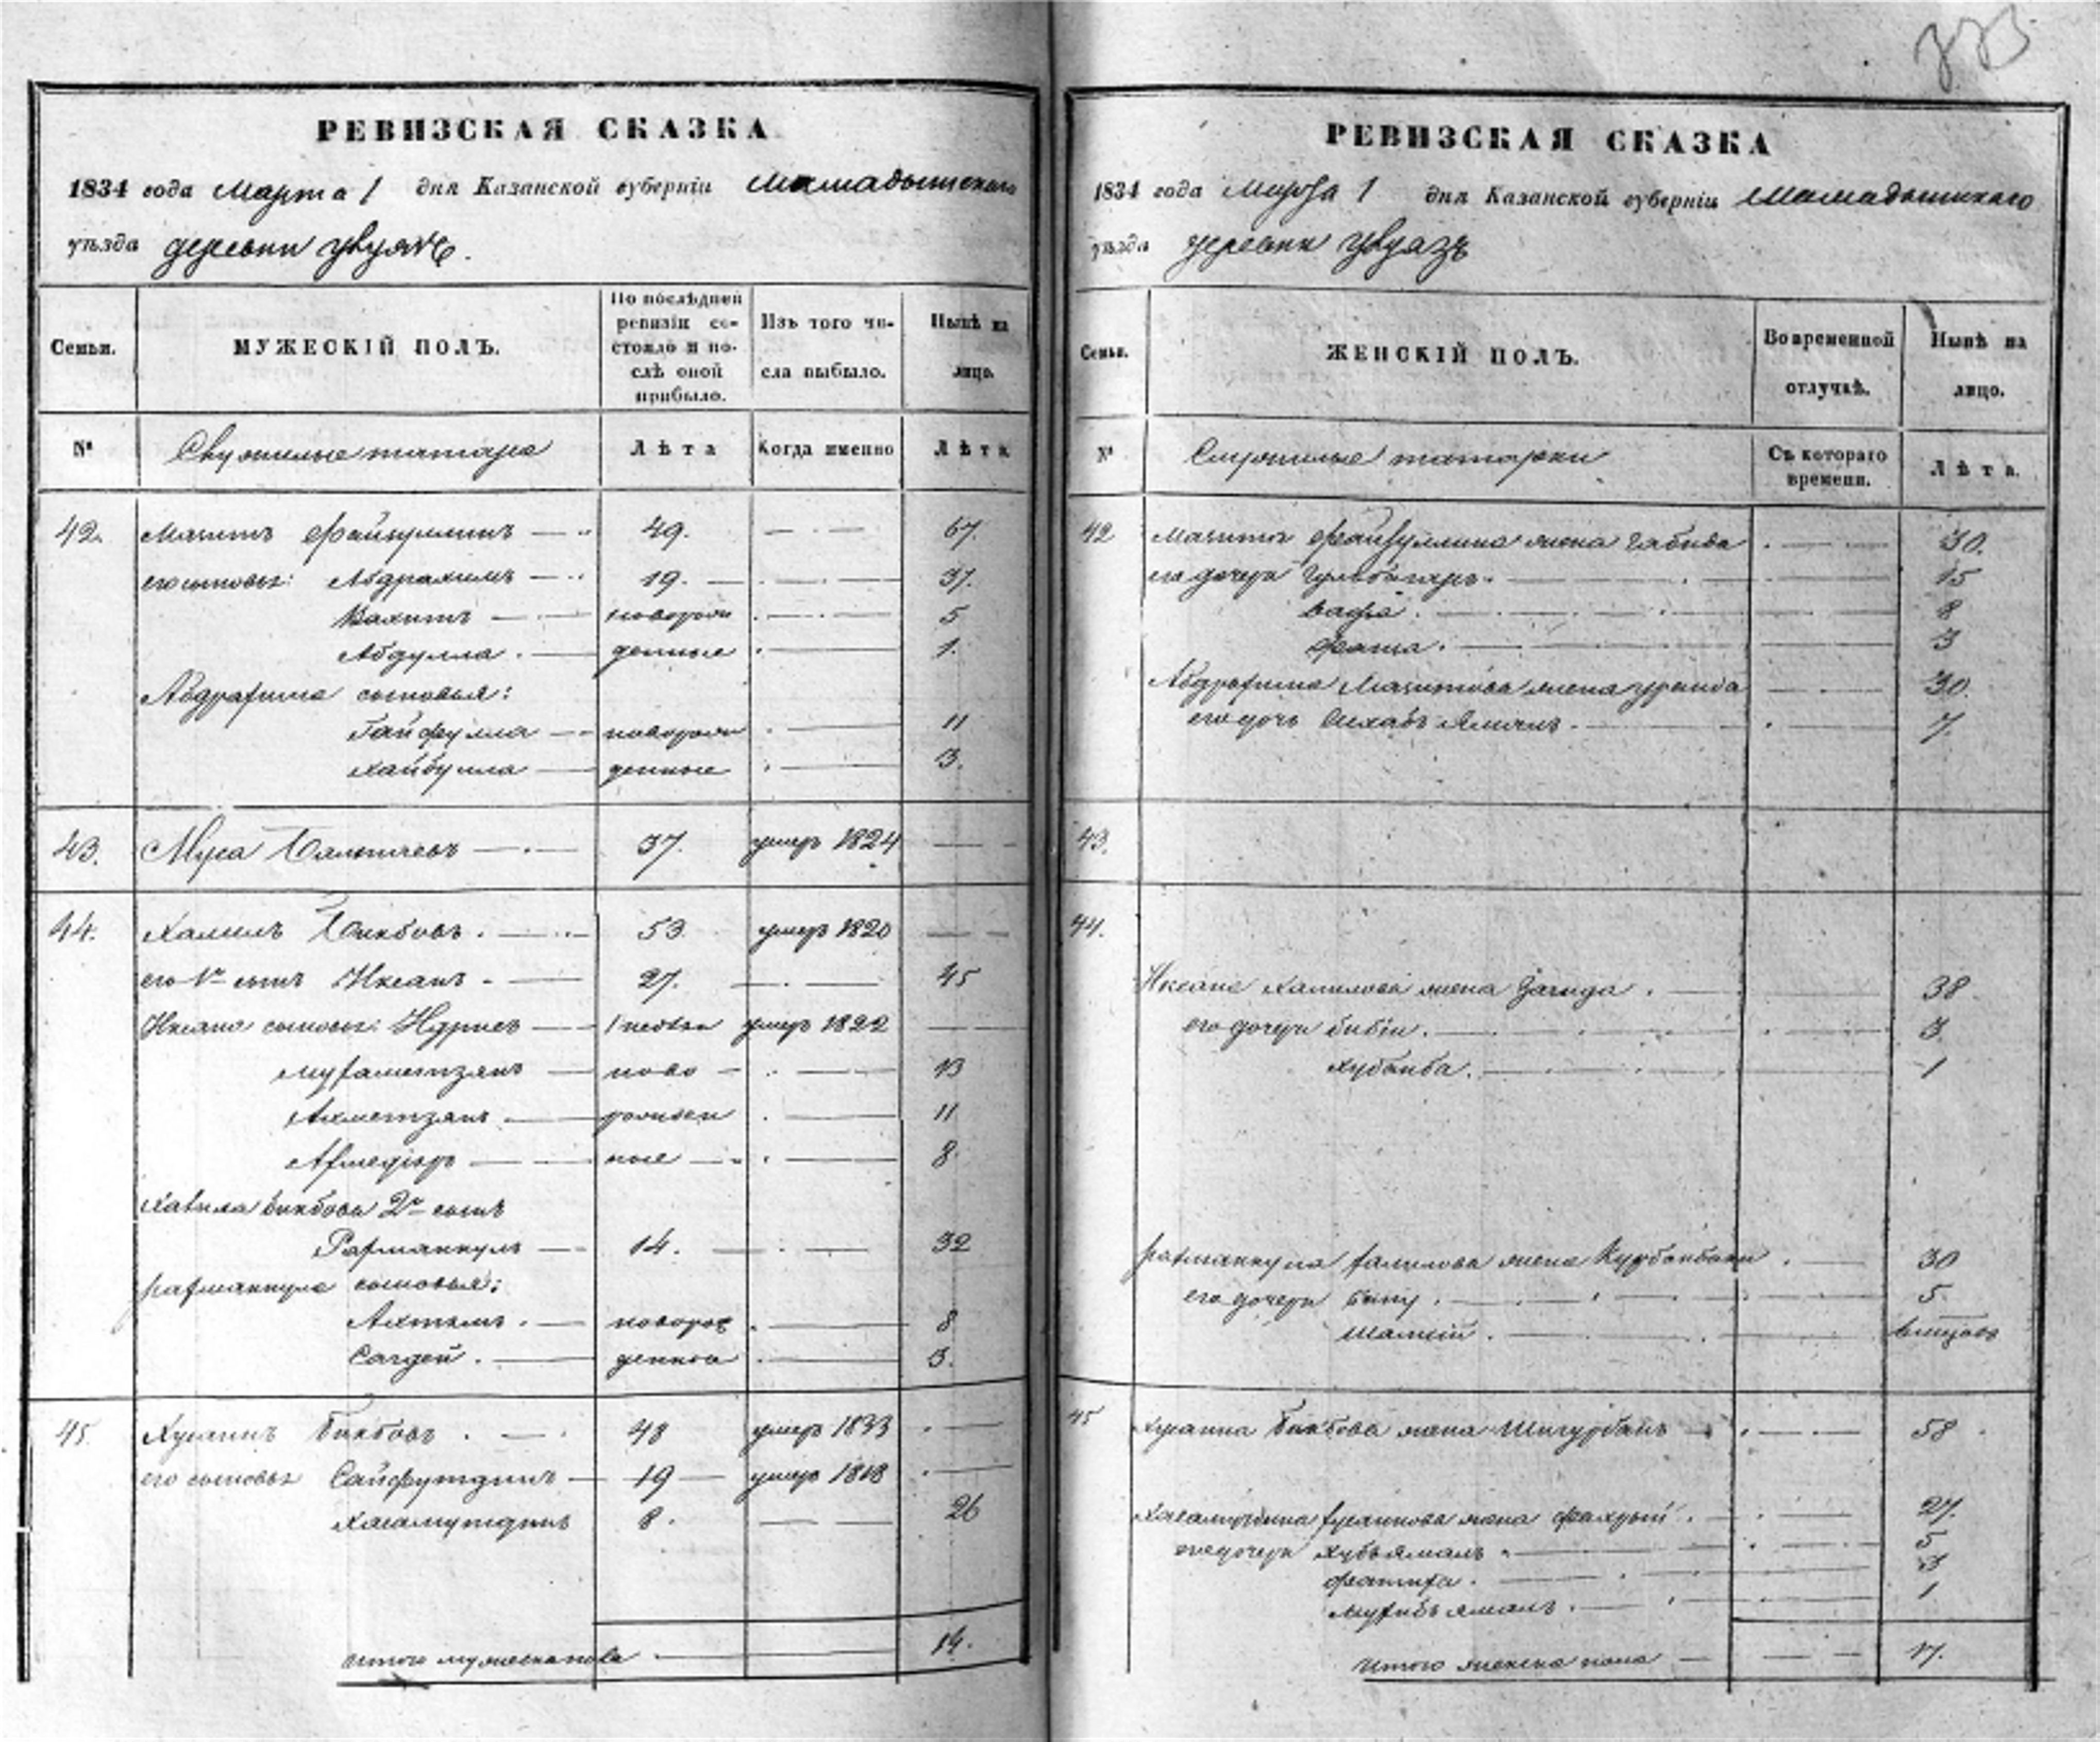 РЕВИЗСКАЯ СКАЗКА
1834 года Марта 1 дня Казанской губерніи Мамадышскаго
уѣзда деревни
Семьи.
МУЖЕСКІЙ ПОЛЪ.
По послѣдней ревизіи состояло и послѣ оной прибыло.
Изъ того числа выбыло.
Нынѣ на лицо.
№
Служилые татара
Лѣта
Когда именно
Лѣта
42. Мачитъ Файзуллинъ 49. 67.
его сыновья: Абдрахимъ 19. 37.
Вахитъ новорож 5
Абдулла денные 1.
Абдрахима сыновья:
Гайфулла новорож 11
Хайбулла денные 3.
43. Муса 37. умеръ 1824
44. Халилъ Бикбовъ 53 умеръ 1820
его 1й сынъ Иксанъ 27. 45
Иксана сыновья: Идрисъ умеръ 1822
Мухаметзянъ ново 13
Ахметзянъ рожден 11
ные 8.
Халила Бикбова 2й сынъ
Рахманкулъ 14. 32
Рахманкула сыновья:
Ахтямъ новорож 8
Сагдей денные 3.
45. Хусаинъ Бикбовъ 48 умеръ 1833
его сыновья Сайфутдинъ 19 умеръ 1818
Хасамутдинъ 8. 26
Итого мужеска пола 14.
РЕВИЗСКАЯ СКАЗКА
1834 года Марта 1 дня Казанской губерніи Мамадышскаго
уѣзда деревни
Семьи.
ЖЕНСКІЙ ПОЛЪ.
Во временной отлучкѣ.
Нынѣ на лицо.
№
Служилые татарки
Съ котораго времени.
Лѣта.
42 Мачита Файзуллина жена Габида 30.
его дочери 15
Вафа 8
3
Абдрахима Мачитова жена 30.
его дочь 7.
43.
44.
Иксана Халилова жена Загида 38
его дочери Биби 3
1
Рахманкула Халилова жена Курбанбака 30
его дочери Бану 5
45 Хусаина Бикбова жена 58
Хасамутдина Хусаинова жена Фахрый 27.
его дочери Хубъямалъ 5
Фатиха 3
1
Итого женска пола 17.